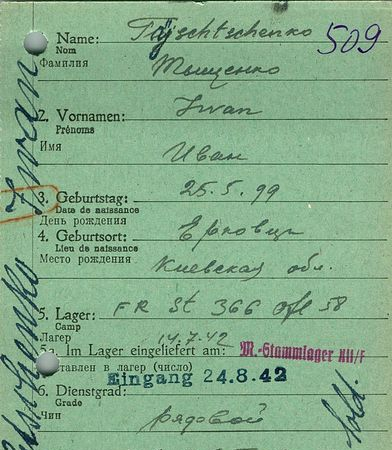 509
Name: Tyschtschenko
Nom
Фамилия Тыщенко
2. Vornamen: Iwan
Prénoms
Имя Иван
3. Geburtstag: 25.5.99
Date de naissance
День рождения
4. Geburtsort: Ерковцы
Lieu de naissance
Место рождения Киевская обл.
5. Lager: FR St 366 Ofl 58
Camp
Лагерь 14.7.42
5a. Im Lager eingeliefert am: M.-Stammlager XII/F
доставлен в лагерь (число)
Eingang 24.8.42
6. Dienstgrad:
Grade
Чин рядовой
Sold.
Iwan